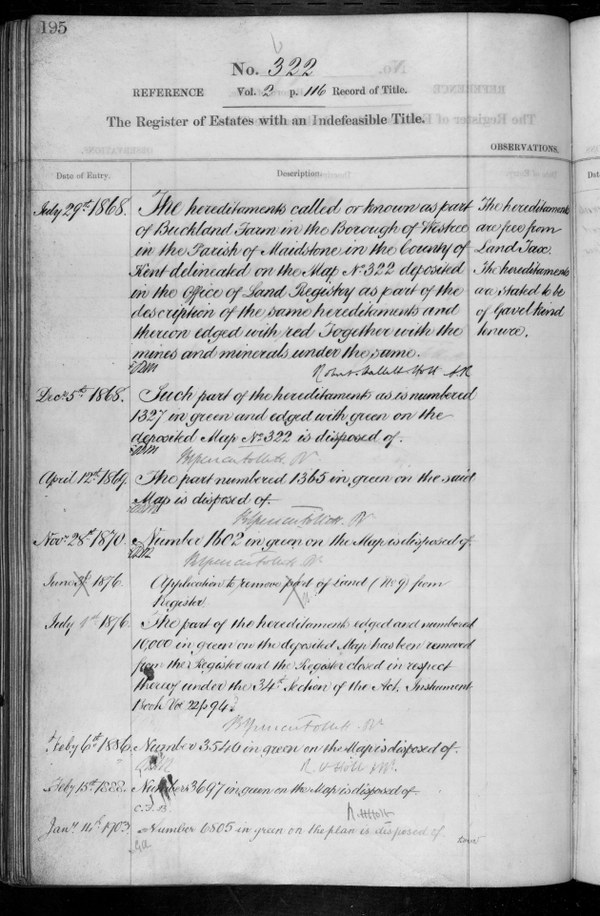 195
No. 322
REFERENCE Vol. 2 p. 116 Record of Title.
The Register of Estates with an Indefeasible Title.
OBSERVATIONS.
Date of Entry. Description.
July 29th 1868. The hereditaments called or known as part
of Buckland Farm in the Borough of
in the Parish of Maidstone in the County of
Kent delineated on the Map No 322 deposited
in the Office of Land Registry as part of the
description of the same hereditaments and
thereon edged with red Together with the
mines and minerals under the same.
The hereditaments
are free from
Land Tax.
The hereditaments
are stated to be
of Gavelkind
tenure.
Robert Hallett Holt A.R
Decr 5th 1868. Such part of the hereditaments as is numbered
1327 in green and edged with green on the
deposited Map No 322 is disposed of.
B Spencer Follett. R
April 12th 1869 The part numbered 1365 in green on the said
Map is disposed of.
B Spencer Follett. R
Novr 28th 1870. Number 1602 in green on the Map is disposed of.
B Spencer Follett. R
June 1876. (Application to remove part of Land (No 9) from
Register.
July 1st 1876. The part of the hereditaments edged and numbered
10,000 in green on the deposited Map has been removed
from the Register and the Register closed in respect
thereof under the 34th Section of the Act. Instrument
Book Vol 22 p 94.
B Spencer Follett. R
Feby 6th 1886. Number 3546 in green on the Map is disposed of.
R H Holt
Feby 18th 1888. Number 3697 in green on the Map is disposed of
C.J.B. R H Holt
Jany 14th 1903. Number 6805 in green on the plan is disposed of.